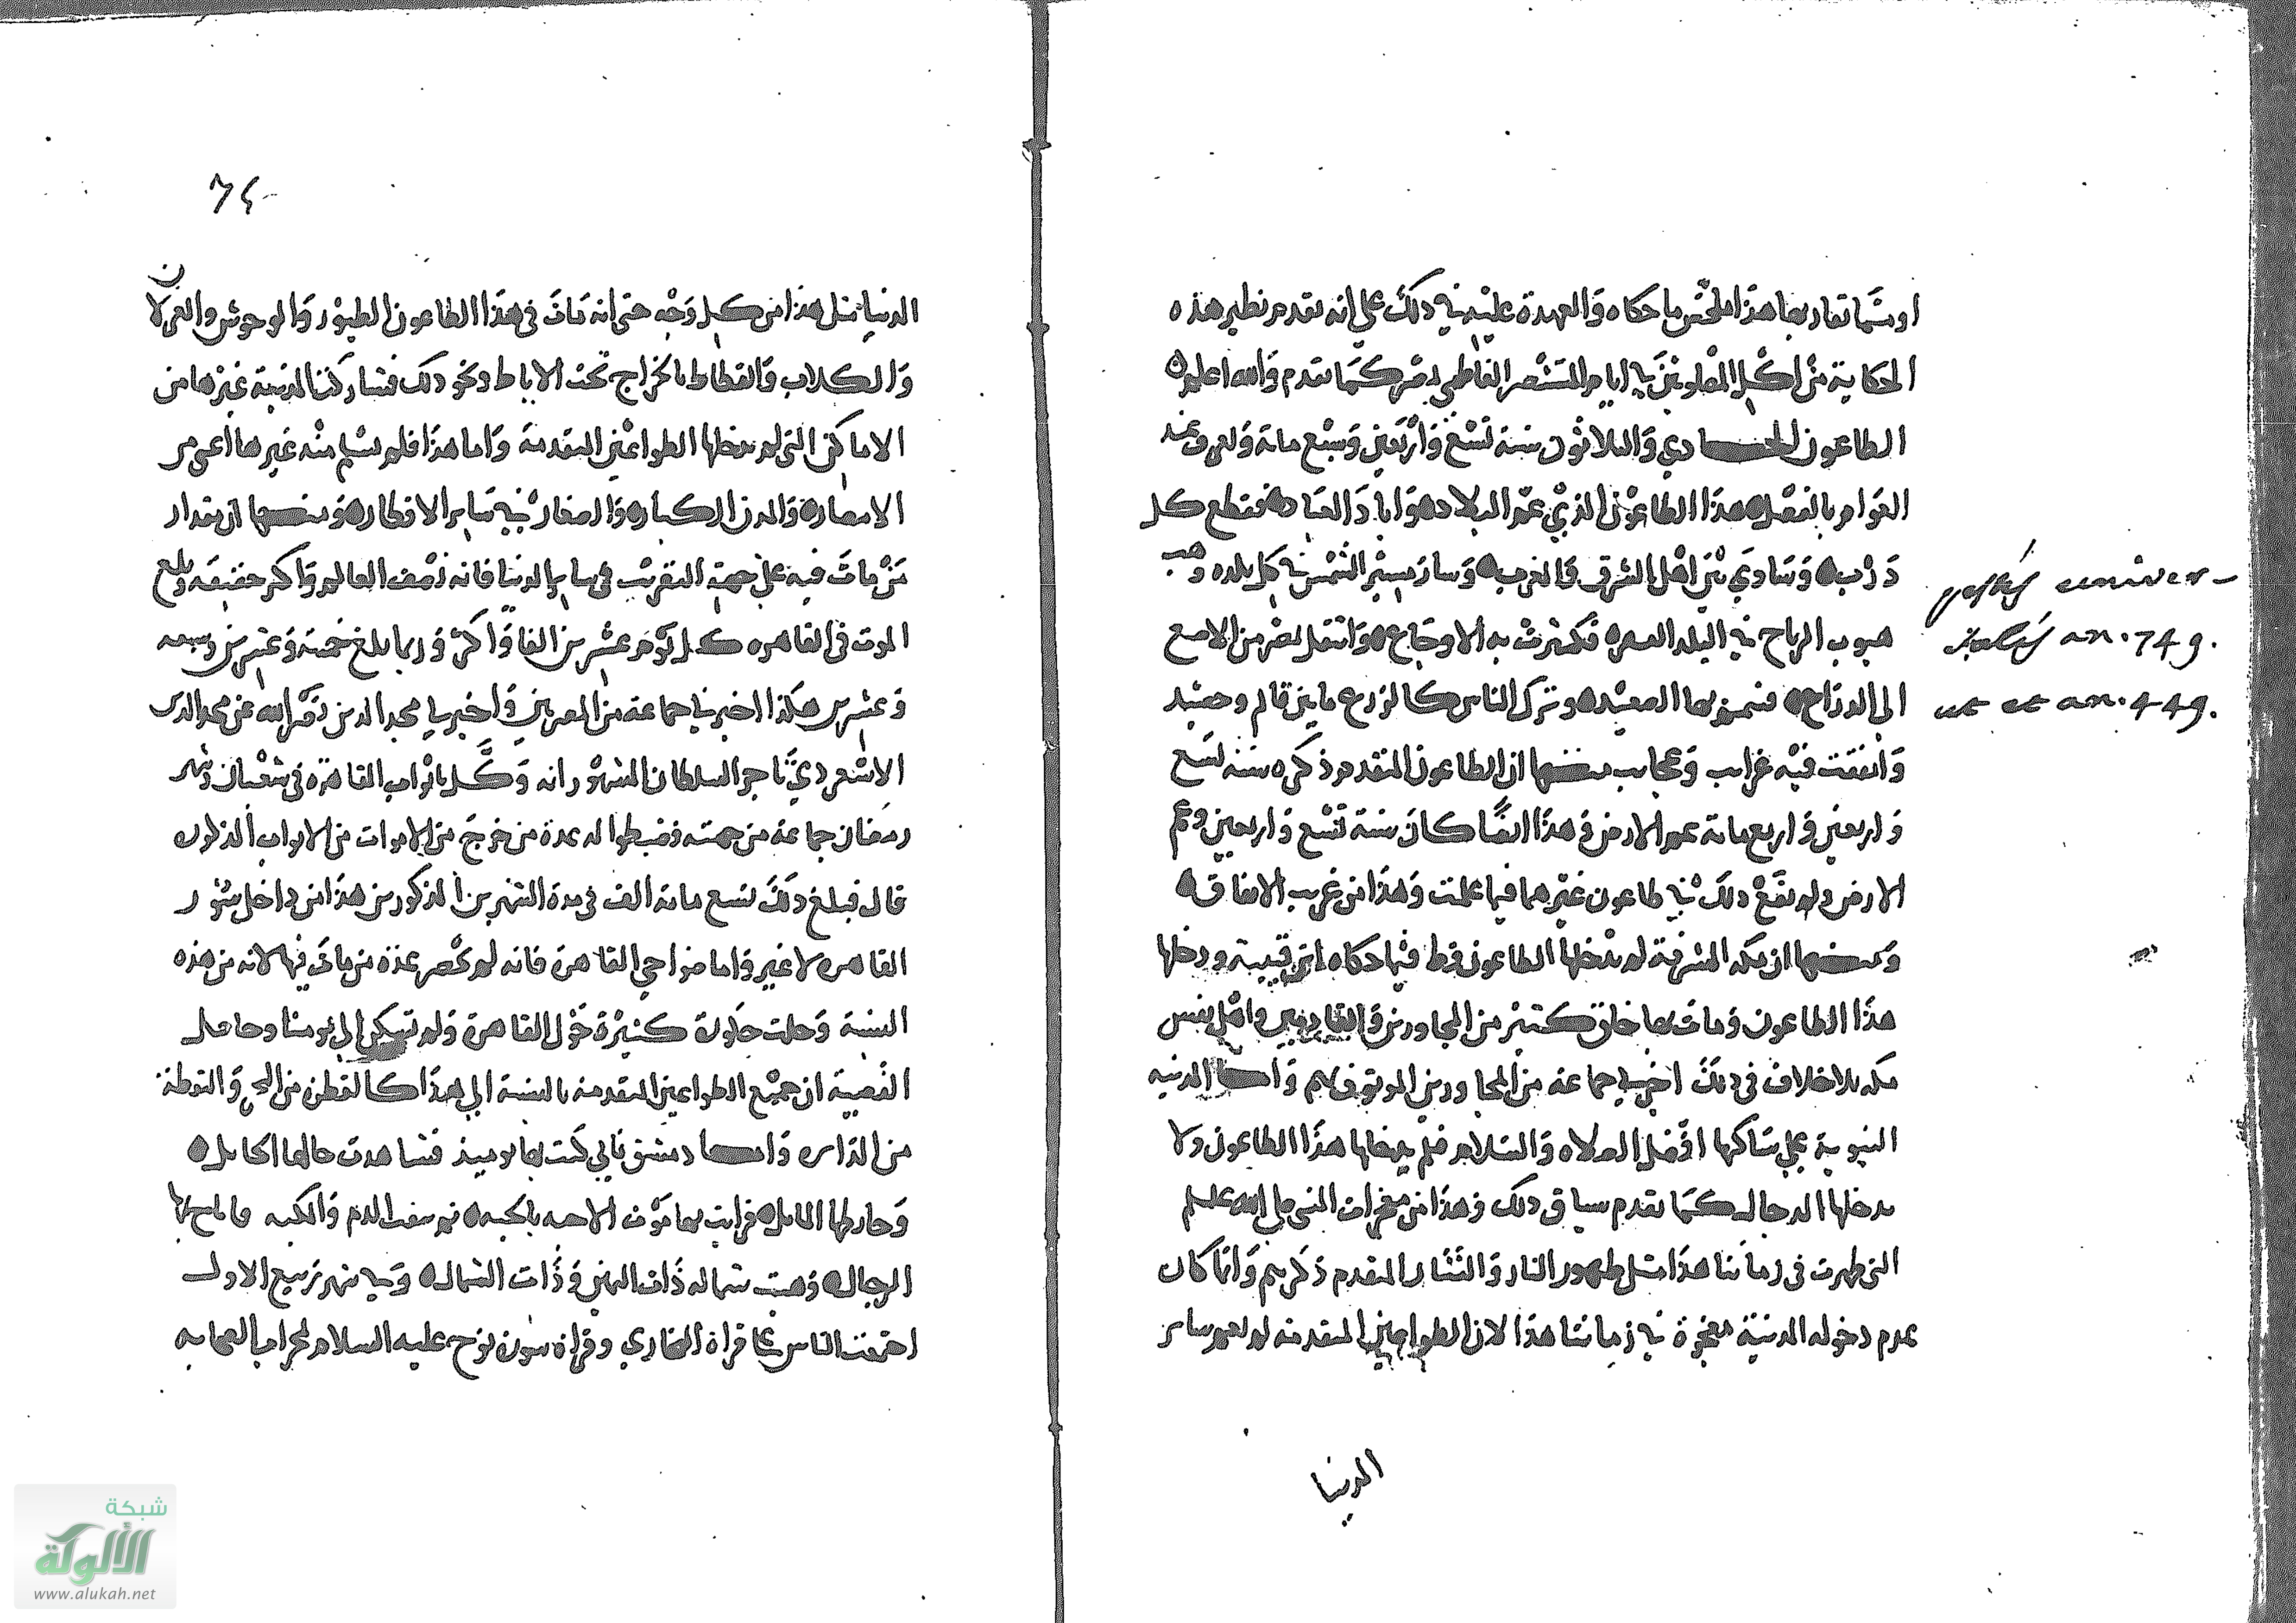 او شما تقاربها هذا ملخص ما حكاه والعهدة عليه في ذلك على انه تقدم نظير هذه
الحكاية من اكل المعلوفين في ايام المستنصر الفاطمي بمصر كما تقدم والله اعلم
الطاعون الحادي والثلاثون سنة تسع واربعين وسبع ماية ويعرف عند
العوام بالفصل هذا الطاعون الذي عم البلاد واباد العباد فقطع كل
درب وساوي بين اهل الشرق والغرب وسار مسير الشمس في كل بلده وهب
هبوب الرياح في البلد العسره فكثرت به الاوجاع وانتقل بصر من الاصبع
الى الذراع وترك الناس كالزرع ما بين قائم وحصيد
واتفقت فيه غرايب وعجايب منها ان الطاعون المتقدم ذكره سنة تسع
واربعين واربع ماية عم الارض وهذا ايضا كان سنة تسع واربعين وعم
الارض ولم يقع ذلك في طاعون غيرهما فيما علمت وهذا من غريب الاتفاق
ومنها ان مكه المشرفة لم يدخلها الطاعون قط فيما حكاه ابن قتيبة ودخلها
هذا الطاعون ومات بها خلق كثير من المجاورين والقادمين واهل نفس
مكه بلا خلاف في ذلك اخبرني جماعة من المجاورين الموثوق بهم واما المدينه
النبوية على ساكنها افضل الصلاه والسلام فلم يدخلها هذا الطاعون ولا
يدخلها الدجال كما تقدم سياق ذلك وهذا من معجزات النبي صلى الله عليه وسلم
التي ظهرت في زماننا هذا مثل ظهور النار والتتار المتقدم ذكرهم وانما كان
عدم دخوله المدينة معجزة في زماننا هذا لان الطواعين المتقدمة لم تعم ساير
الدنيا
pestis univer-
salis an. 749.
ut et an. 449.
٦٤
الدنيا مثل هذا من كل وجه حتى انه مات في هذا الطاعون الطيور والوحوش والغزلان
والكلاب والقطاط بالخراج تحت الاباط ونحو ذلك فشاركت المدينة غيرها من
الاماكن التي لم يدخلها الطواعين المتقدمة واما هذا فلم يسلم منه غيرها اعني من
الامصار والمدن الكبار والصغار في ساير الاقطار ومنها ان مقدار
من مات فيه على جهة التقريب في ساير الدنيا فانه نصف العالم واكثر حقيقه وبلغ
الموت في القاهره كل يوم عشرين الفا واكثر وربما بلغ خمسة وعشرين وسبعه
وعشرين هكذا اخبرني جماعة من المصريين واخبرني مجد الدين
الاسعردي تاجر السلطان المشهور انه وكل بابواب القاهرة في شعبان وشهر
رمضان جماعة من جهته فضبطوا له عدة من خرج من الاموات من الابواب المذكوره
قال فبلغ ذلك تسع ماية الف في مدة الشهرين المذكورين هذا من داخل سور
القاهره لا غير واما ضواحي القاهرة فانه لم تحصر عدة من مات فيها لانه من هذه
السنة وحلت حلول كثيرة حول القاهرة ولم تسكن الى يومنا وحاصل
القضية ان جميع الطواعين المتقدمة بالنسبة الى هذا كالقطرة من البحر والنقطة
من الدايره واما دمشق فاني كنت بها يوميذ فشاهدت حالها الحايل
فرايت بها موت الاحبه بالكبه ثم بنفث الدم
الرجال وهبت شماله ذات اليمين وذات الشمال وفي شهر ربيع الاول
اجتمعت الناس على قراة البخاري وقراة سورة نوح عليه السلام بمحراب الصحابه
شبكة
الألوكة
www.alukah.net